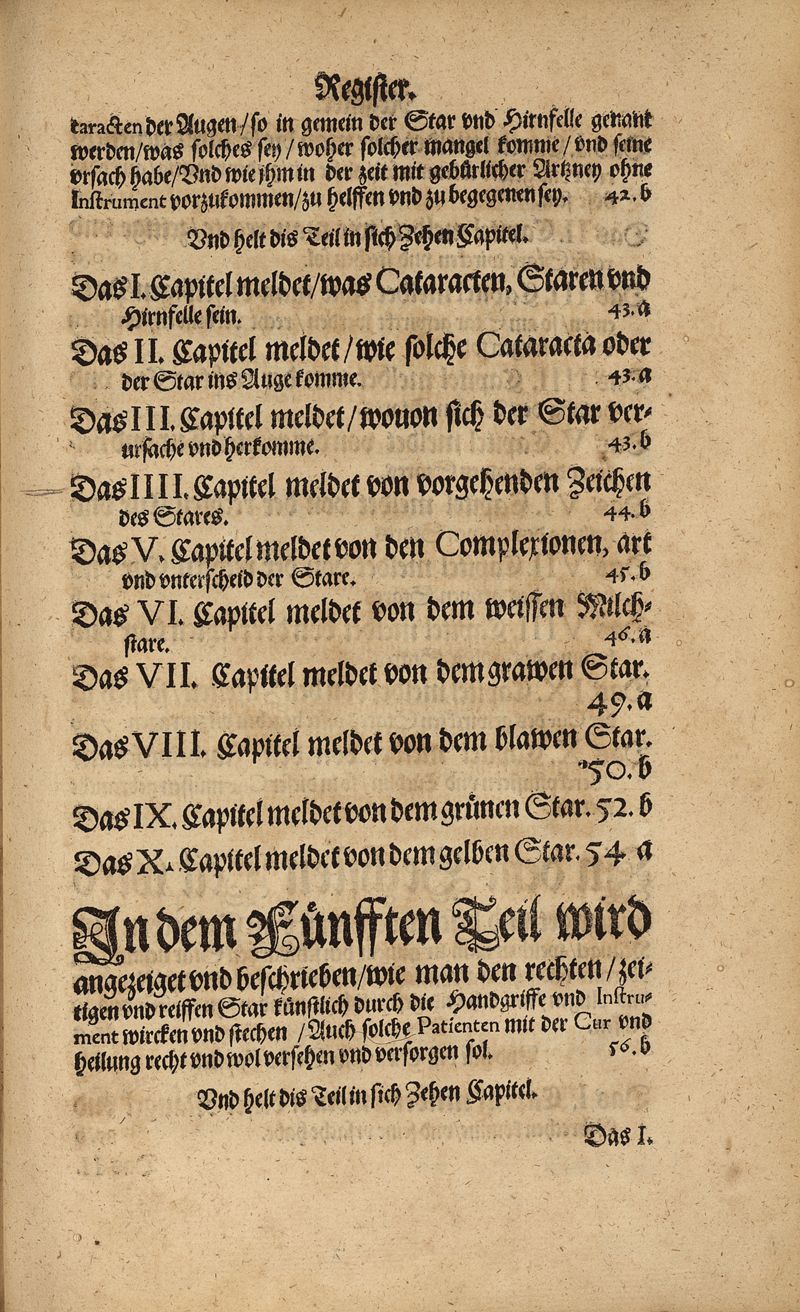 Register.
taracten der Augen/so in gemein der Star vnd Hirnfelle genant
werden/was solches sey/woher solcher mangel komme/vnd seine
vrsach habe/Vnd wie jhm in der zeit mit gebürlicher Artzney ohne
Instrument vorzukommen/zu helffen vnd zu begegenen sey. 42.b
Vnd helt dis Teil in sich Zehen Capitel.
Das I. Capitel meldet/was Cataracten, Staren vnd
Hirnfelle sein. 43.a
Das II. Capitel meldet/wie solche Cataracta oder
der Star ins Auge komme. 43.a
Das III. Capitel meldet/wouon sich der Star ver-
ursache vnd herkomme. 43.b
Das IIII. Capitel meldet von vorgehenden Zeichen
des Stares. 44.b
Das V. Capitel meldet von den Complexionen, art
vnd vnterscheid der Stare. 45.b
Das VI. Capitel meldet von dem weissen Milch-
stare. 46.a
Das VII. Capitel meldet von dem grawen Star.
49.a
Das VIII. Capitel meldet von dem blawen Star.
50.b
Das IX. Capitel meldet von dem grünen Star. 52.b
Das X. Capitel meldet von dem gelben Star. 54 a
In dem Fünfften Teil wird
angezeiget vnd beschrieben/wie man den rechten/zei-
tigen vnd reiffen Star künstlich durch die Handgriffe vnd Instru-
ment wircken vnd stechen /Auch solche Patienten mit der Cur vnd
heilung recht vnd wol versehen vnd versorgen sol. 56.b
Vnd helt dis Teil in sich Zehen Capitel.
Das I.